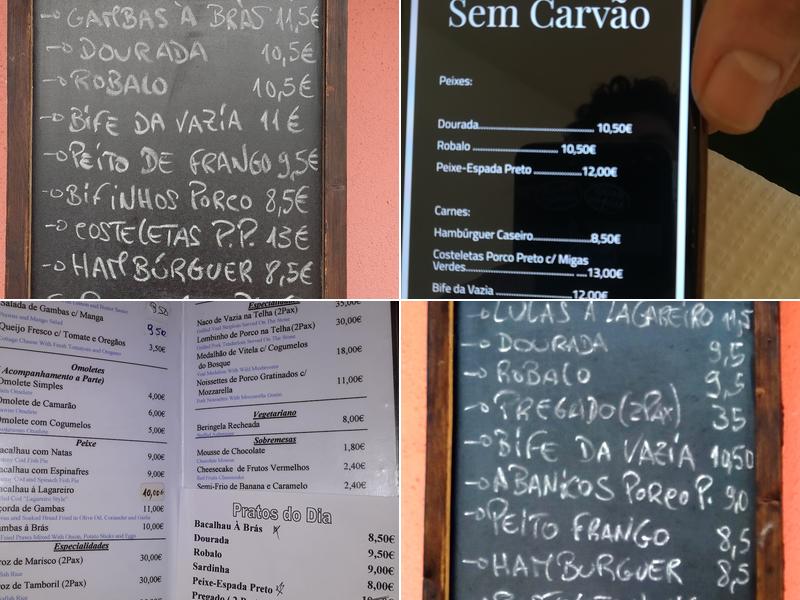 GAMBAS À BRÁS 11,5€
DOURADA 10,5€
ROBALO 10,5€
BIFE DA VAZIA 11€
PEITO DE FRANGO 9,5€
BIFINHOS PORCO 8,5€
COSTELETAS P.P. 13€
HAMBÚRGUER 8,5€
Sem Carvão
Peixes:
Dourada 10,50€
Robalo 10,50€
Peixe-Espada Preto 12,00€
Carnes:
Hambúrguer Caseiro 8,50€
Costeletas Porco Preto c/ Migas
Verdes 13,00€
Bife da Vazia 12,00€
Salada de Gambas c/ Manga 9,50
Prawns and Mango Salad
Queijo Fresco c/ Tomate e Oregãos 9,50
Cottage Cheese With Fresh Tomatoes and Oregano 3,50€
Omoletes
Acompanhamento a Parte)
Omolete Simples 4,00€
Omolete de Camarão 6,00€
Omolete com Cogumelos 5,00€
Peixe
acalhau com Natas 9,00€
acalhau com Espinafres 9,00€
Cod and Spinach Fish Pie
acalhau á Lagareiro 10,00€
orda de Gambas 11,00€
ambas á Brás 10,00€
Especialidades
roz de Marisco (2Pax) 30,00€
roz de Tamboril (2Pax) 30,00€
35,00€
Naco de Vazia na Telha (2Pax) 30,00€
Grilled Veal Sirploin Served On The Stone
Lombinho de Porco na Telha (2Pax)
Grilled Pork Tenderloin Served On The Stone
Medalhão de Vitela c/ Cogumelos 18,00€
do Bosque
Veal Medalion With Wild Mushrooms
Noissettes de Porco Gratinados c/ 11,00€
Mozzarella
Pork Noissettes With Mozzarella Gratin
Vegetariano
Beringela Recheada 8,00€
Sobremesas
Mousse de Chocolate 1,80€
Chocolate Mousse
Cheesecake de Frutos Vermelhos 2,40€
Semi-Frio de Banana e Caramelo 2,40€
Pratos do Dia
Bacalhau À Brás
Dourada 8,50€
Robalo 9,50€
Sardinha 9,00€
Peixe-Espada Preto 8,00€
LULAS À LAGAREIRO 11,5
DOURADA 9,5
ROBALO 9,5
PREGADO (2PAX) 35
BIFE DA VAZIA 10,50
ABANICOS PORCO P. 9,0
PEITO FRANGO 8,5
HAMBURGUER 8,5